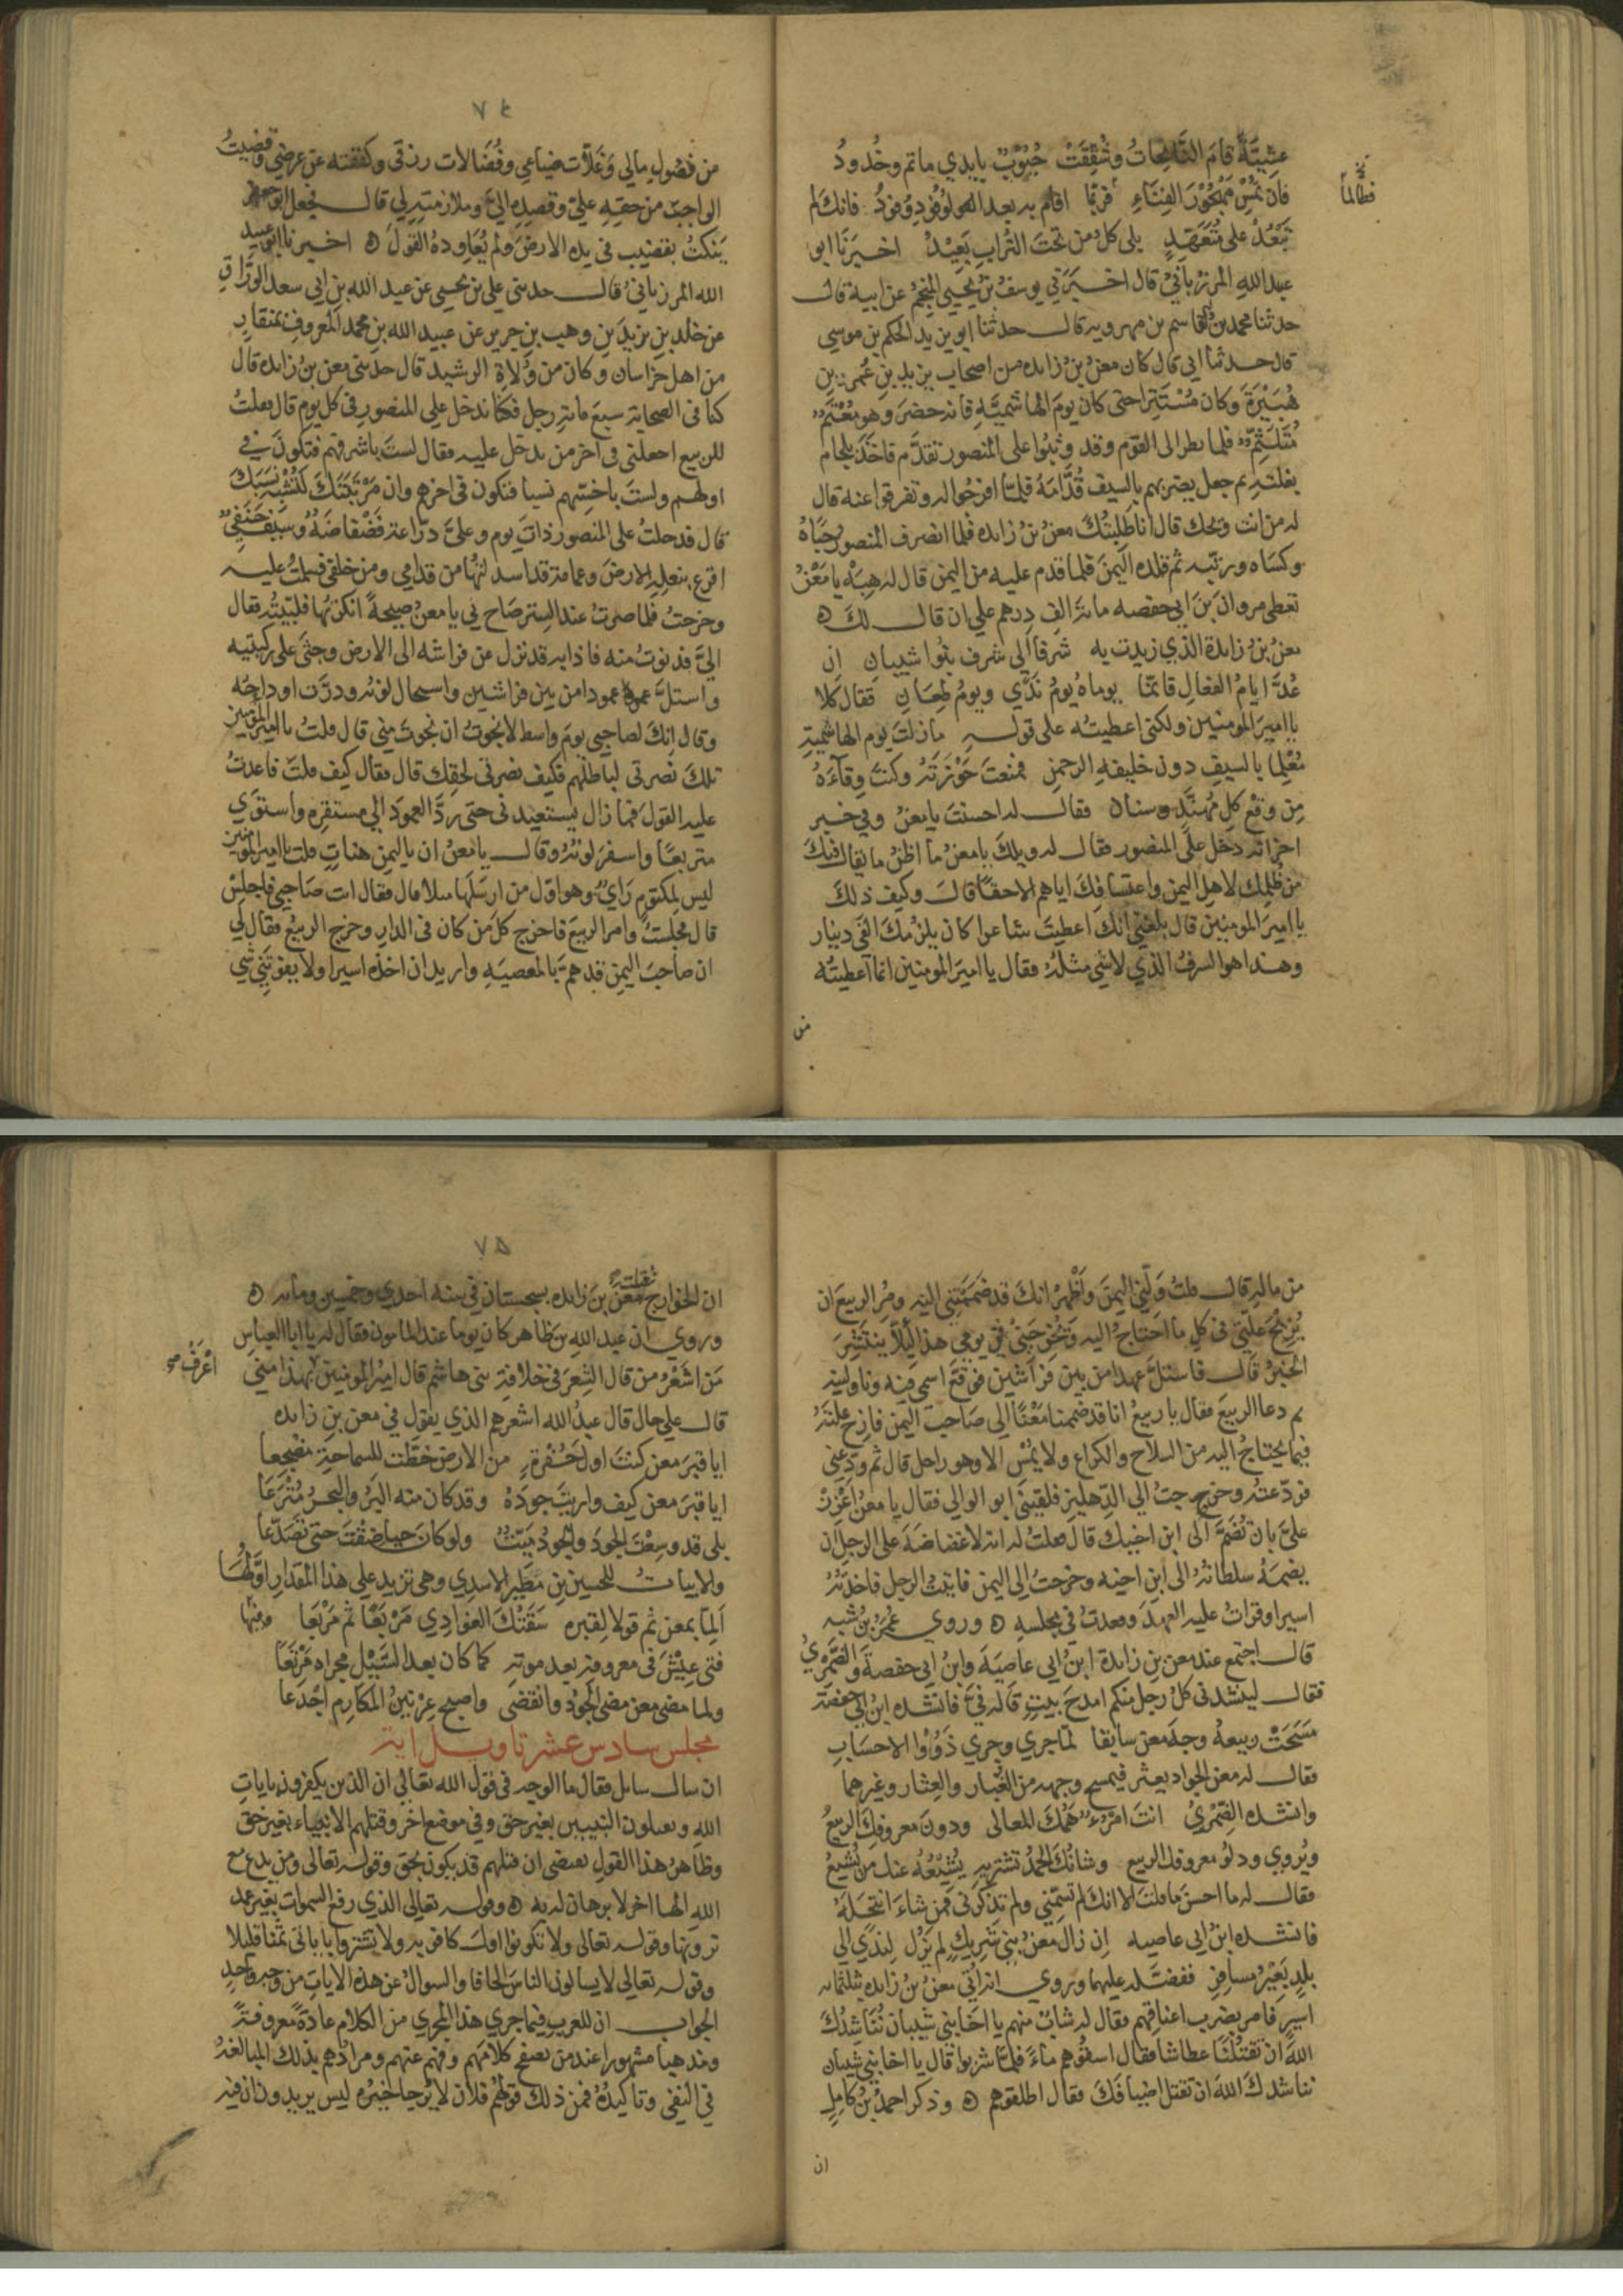 عشيّةَ قامَ النَّائِحاتُ وشُقِّقَتْ جُيُوبٌ بايدي ماتم وخُدودُ
فطالما
فان تُمْسِ مَهْجُوْرَ الفِنَاءِ فربّما اقام به بعد الوفُودِ وُفودُ فانك لم
تَبْعُدْ على مُتَعَهّدٍ بلى كلّ من تحتَ التُّرابِ بَعِيْدُ اخبرَنا ابو
عبد اللهِ المرزُبانيّ قال اخبَرَني يوسفُ بنُ يحيى المنجم عن ابيه قال
حدثنا محمد بن القاسم بن مهرويه قال حدثنا ابو يزيد الحكم بن موسى
قال حدثنا ابي قال كان معنُ بنُ زايده من اصحاب يزيد بن عُمر بن
هُبَيْرَة وكان مُسْتَتِرا حتى كان يوم الهاشميّه فانه حضرَ وهو مُعْتَمٌّ
مُتَلَثّمٌ فلما نظر الى القوم وقد وثبُوا على المنصور تقدّم فاخَذَ بلجام
بغلته ثم جعل يضربهم بالسيف قُدّامَهُ فلمّا افرجُوا له وتفرقوا عنه قال
له من انت ويحك قال انا طَلِبَتُكَ معنُ بنُ زايده فلما انصرف المنصورُ حَبَاهُ
وكسَاه ورتبه ثم قلده اليمنَ فلما قدم عليه من اليمن قال له هِيهْ يا مَعْنُ
تعطي مروانَ بنَ ابي حفصه مائة الفِ درهم على ان قال لكَ ه
معنُ بنُ زايدة الذي زيدت به شرفا الى شرف بنُوا شيبانِ ان
عُدَّ ايامُ الفعَالِ فانّما يوماهُ يومُ نَدًى ويومُ طِعَانِ فقال كلا
يا اميرَ المومنين ولكنى اعطيتُه على قوله ما زلتَ يوم الهاشميّةِ
مُعْلِما بالسيفِ دون خليفهِ الرحمنِ فمنعتَ حَوْزَتَهُ وكنتَ وِقَآءَهُ
مِن وَقْعِ كلِّ مُهنَّدٍ وسنان فقال له احسنتَ يا معنُ وفي خبر
اخر انه دخل على المنصور فقال له ويلكَ يا معنُ ما اظنّ ما يقال فيكَ
من ظُلمِك لاهلِ اليمن واعتسَافِكَ اياهم الا حقّا قالَ وكيف ذلكَ
يا اميرَ المومنين قال بلغنيَ انكَ اعطيتَ شاعرا كان يلزمُكَ الفَي دينار
وهذا هو السرفُ الذي لا شيَ مثلهُ فقال يا اميرَ المومنين انما اعطيتُه
من
٧٤
من فُصُولِ مالي وَغلّات ضياعي وفُضَالات رزقي وكففته عن عرضي وقضيتُ
الواجبَ من حقّهِ عليّ وقصدِهِ اليّ وملازمتِهِ لي قال فجعل ابو جعفر
يَنكتُ بقضيب في يده الارضَ ولم يُعَاوِدهُ القولَ ه اخبرنا ابو عبيد
الله المرزباني قال حدثني علي بن يحيى عن عبد الله بن ابي سعد الورّاقِ
عن خلد بنِ يزيدَ بنِ وهب بنِ جرير عن عبيد الله بنِ محمد المعروفِ بمنقارِ
من اهل خراسان وكان من وُلاةِ الرشيد قال حدثني معن بنُ زايده قال
كنا في الصحابة سبعَ مائةِ رجل فكنا ندخل على المنصورِ في كل يوم قال فعلتُ
للربيع اجعلني في آخر من يدخل عليه فقال لستَ باشرفهم فتكونَ في
اولهم ولستَ باخسّهم نسبا فتكون في اخرهم وان مرتَبَتَكَ لَتُشْبِهُ نَسَبَكَ
قال فدخلتُ على المنصور ذاتَ يوم وعليَّ درّاعة فَضْفاضَةٌ وسيفٌ حَنَفِيٌّ
اقرع بنعلِه الارضَ وعمامة قد اسدلتُها من قدامي ومن خلفي فسلمتُ عليه
وخرجتُ فلما صرتُ عند السِتر صَاح بي يا معنُ صيحةً انكرتُها فلبّيتُهِ فقال
اليَّ فدنوتُ منه فاذا به قد نزل عن فراشه الى الارض وجثَى على ركبتيه
واستلَّ عمودا من بين فراشين واستحال لونه ودرَّت اوداجُه
وقال انكَ لصَاحبي يومَ واسط لا نجوتُ ان نجوتَ مني قال قلتُ يا امير المومنين
تلكَ نُصرتي لباطلِهم فكيف نصرتي لحقِّك قال فقال كيف قلتَ فاعدتُ
عليه القولَ فما زال يستعيدني حتى ردَّ العمودَ الى مستقرِه واستوَى
متربعًا واسفرَ لونُهُ وقال يا معنُ ان باليمنِ هناتٍ قلت يا امير المومنين
ليس لِمكتومٍ رَايٌ وهو اوّل من ارسَلها مثلا قال فقال انت صَاحبي فاجلِسْ
قال فجلستُ وامر الربيعَ فاخرج كلَّ من كان في الدار وخرج الربيعُ فقال لي
ان صَاحبَ اليمنِ قد همّ بالمعصيَهِ واريد ان اخذه اسيرا ولا يفوتَني شي
من مالهِ قال قلتُ وَلِّني اليَمنَ وأظْهِرْ انكَ قد ضَمَمتَني اليه ومُرِ الربيعَ ان
يُزيْحَ علّتي في كل ما احتاجُ اليه وَيُخرِجَنِيْ في يومي هذا ليلَّا ينتَشِرَ
الخبرُ قَال فاستلَّ عهدا من بين فراشين فوقّعَ اسمى فيه وناولنيه
ثم دعا الربيعَ فقال يا ربيعُ انا قد ضممنا مَعْنًا الى صَاحب اليمن فازِح علتَهُ
فيما يحتاجُ اليه من السلاح والكراع ولا يُمْسِ الا وهو راحل قال ثم ودّعني
فودّعتهُ وخرجت الى الدِّهليز فلقيَني ابو الوالي فقال يا معنُ اَعْزِزْ
عليَّ بان تُضَمَّ الى ابن اخيك قال فقلتُ له انه لا غضَاضَةَ على الرجل ان
يضمَهُ سلطانُهُ الى ابن اخيه وخرجتُ الى اليمن فاتيتُ الرجل فاخذتُهُ
اسيرا وقرات عليه العهدَ وقعدتُ في مجلسهِ ه وروي عُمرُ بنُ شبه
قال اجتمع عند معن بن زايدة ابنُ ابي عاصيَة وابنُ ابي حفصةَ والضَّمْريُّ
فقال لينشدني كلُّ رجل منكم امدحَ بيتٍ قاله فيَّ فانشده ابن ابي حفصة
مَسَحَتْ ربيعهُ وجهَ معنٍ سابقا لمّا جرى وجرى ذَوُوْا الاحسَابِ
فقال له معن الجواد يعثر فيمسح وجهه من الغُبار والعِثار وغيرهما
وانشده الضّمْريُّ انتَ امرُءٌ هَمُّكَ المعالى ودونَ معروفِكَ الربيعُ
ويُروي ودلوُ معروفك الربيع وشانُكَ الحمدُ تشتريه يُشيْعُهُ عنك من يُشيعُ
فقال له ما احسنَ ما قلتَ الا انك لم تسمّني ولم تذكرني فمن شاءَ انتحَلَهُ
فانشده ابنُ ابي عاصيه اِن زال معنُ بني شَريكٍ لم يَزُل لِنَدًى الى
بلدٍ بَعِيْرُ مسافِرِ ففضّله عليهما وروي انه اُتي معنُ بنُ زايده بثلثمائه
اسيرٍ فامر بضرب اعناقِهم فقال له شابٌ منهم يا اخَا بني شيبان نُنَاشِدُكَ
اللهَ ان تقتُلَنَا عطاشا فقال اسقُوهم ماءً فلمّا شربوا قال يا اخا بني شيبان
نناشدكَ اللهَ ان تقتل اضيافَكَ فقال اطلقوهم ه وذكر احمدُ بنُ كامِلٍ
ان
٧٥
ان الخوارج قتلت معنَ بنَ زايده بسجستان في سنه احدى وخمسين ومائه ه
وروي ان عبد اللهِ بنَ طَاهر كان يوما عند المامون فقال له يا ابا العباس
مَن اشعَرُ من قال الشعرَ في خلافةِ بني هاشم قال اميرُ المومنين بهذا مِنّي
اعْرَفُ صح
قال على حالٍ قال عبدُ الله اشعرهم الذي يقول في معن بن زايده
ايا قبرَ معن كنتَ اولَ حُفْرةٍ من الارض خُطّت للسماحةِ مضجعا
ايا قبرَ معن كيف واريتَ جودَهُ وقد كان منه البرُ والبحرُ مُتْرَعَا
بلى قد وسِعْتَ الجودَ والجودُ ميّتٌ ولو كان حيا ضِقْتَ حتى تَصَدّعا
والابياتُ للحسين بنِ مُطَيرٍ الاسدِي وهي تزيد على هذا المقدارِ اوّلُها
اَلِمّا بمعن ثم قولا لِقبرِه سَقَتْكَ الغوادِي مَرْبَعًا ثم مَرْبَعَا ومنها
فتى عِيْشَ في معروفه بعد موتهِ كما كان بعد السَّيْلِ مجراه مَرْتَعَا
ولما مضى معن مضى الجُودُ وانقضى واصبح عِرْنينُ المكارم اجْدَعا
مجلس سادس عشر تاويل اية
ان سال سايل فقال ما الوجه في قول الله تعالى ان الذين يكفرون بايات
اللهِ ويقتلون النبيين بغير حق وفي موضع اخر وقتلهم الانبياءَ بغير حق
وظاهرُ هذا القولِ يقتضي ان قتلهم قد يكون بحَقٍ وقوله تعالى ومن يدع مع
الله الها اخر لا برهان له به ه وقوله تعالى الذي رفع السموات بغير عمد
ترونها وقوله تعالى ولا تكونوا اولَ كافر به ولا تشتروا باياتي ثمنا قليلا
وقوله تعالى لا يسالون الناسَ الحافا والسوالُ عن هذه الاياتِ من وجهٍ واحدٍ
الجواب ان للعرب فيما جرى هذا المجرى من الكلام عادةً معروفةً
ومذهبا مشهورا عند من تصفح كلامَهم وفهم عنهم ومرادُهم بذلك المبالغهُ
في النفي وتاكيدُهُ فمن ذلك قولُهُم فلان لا يُرجا خيرُه ليس يريدون ان فيه